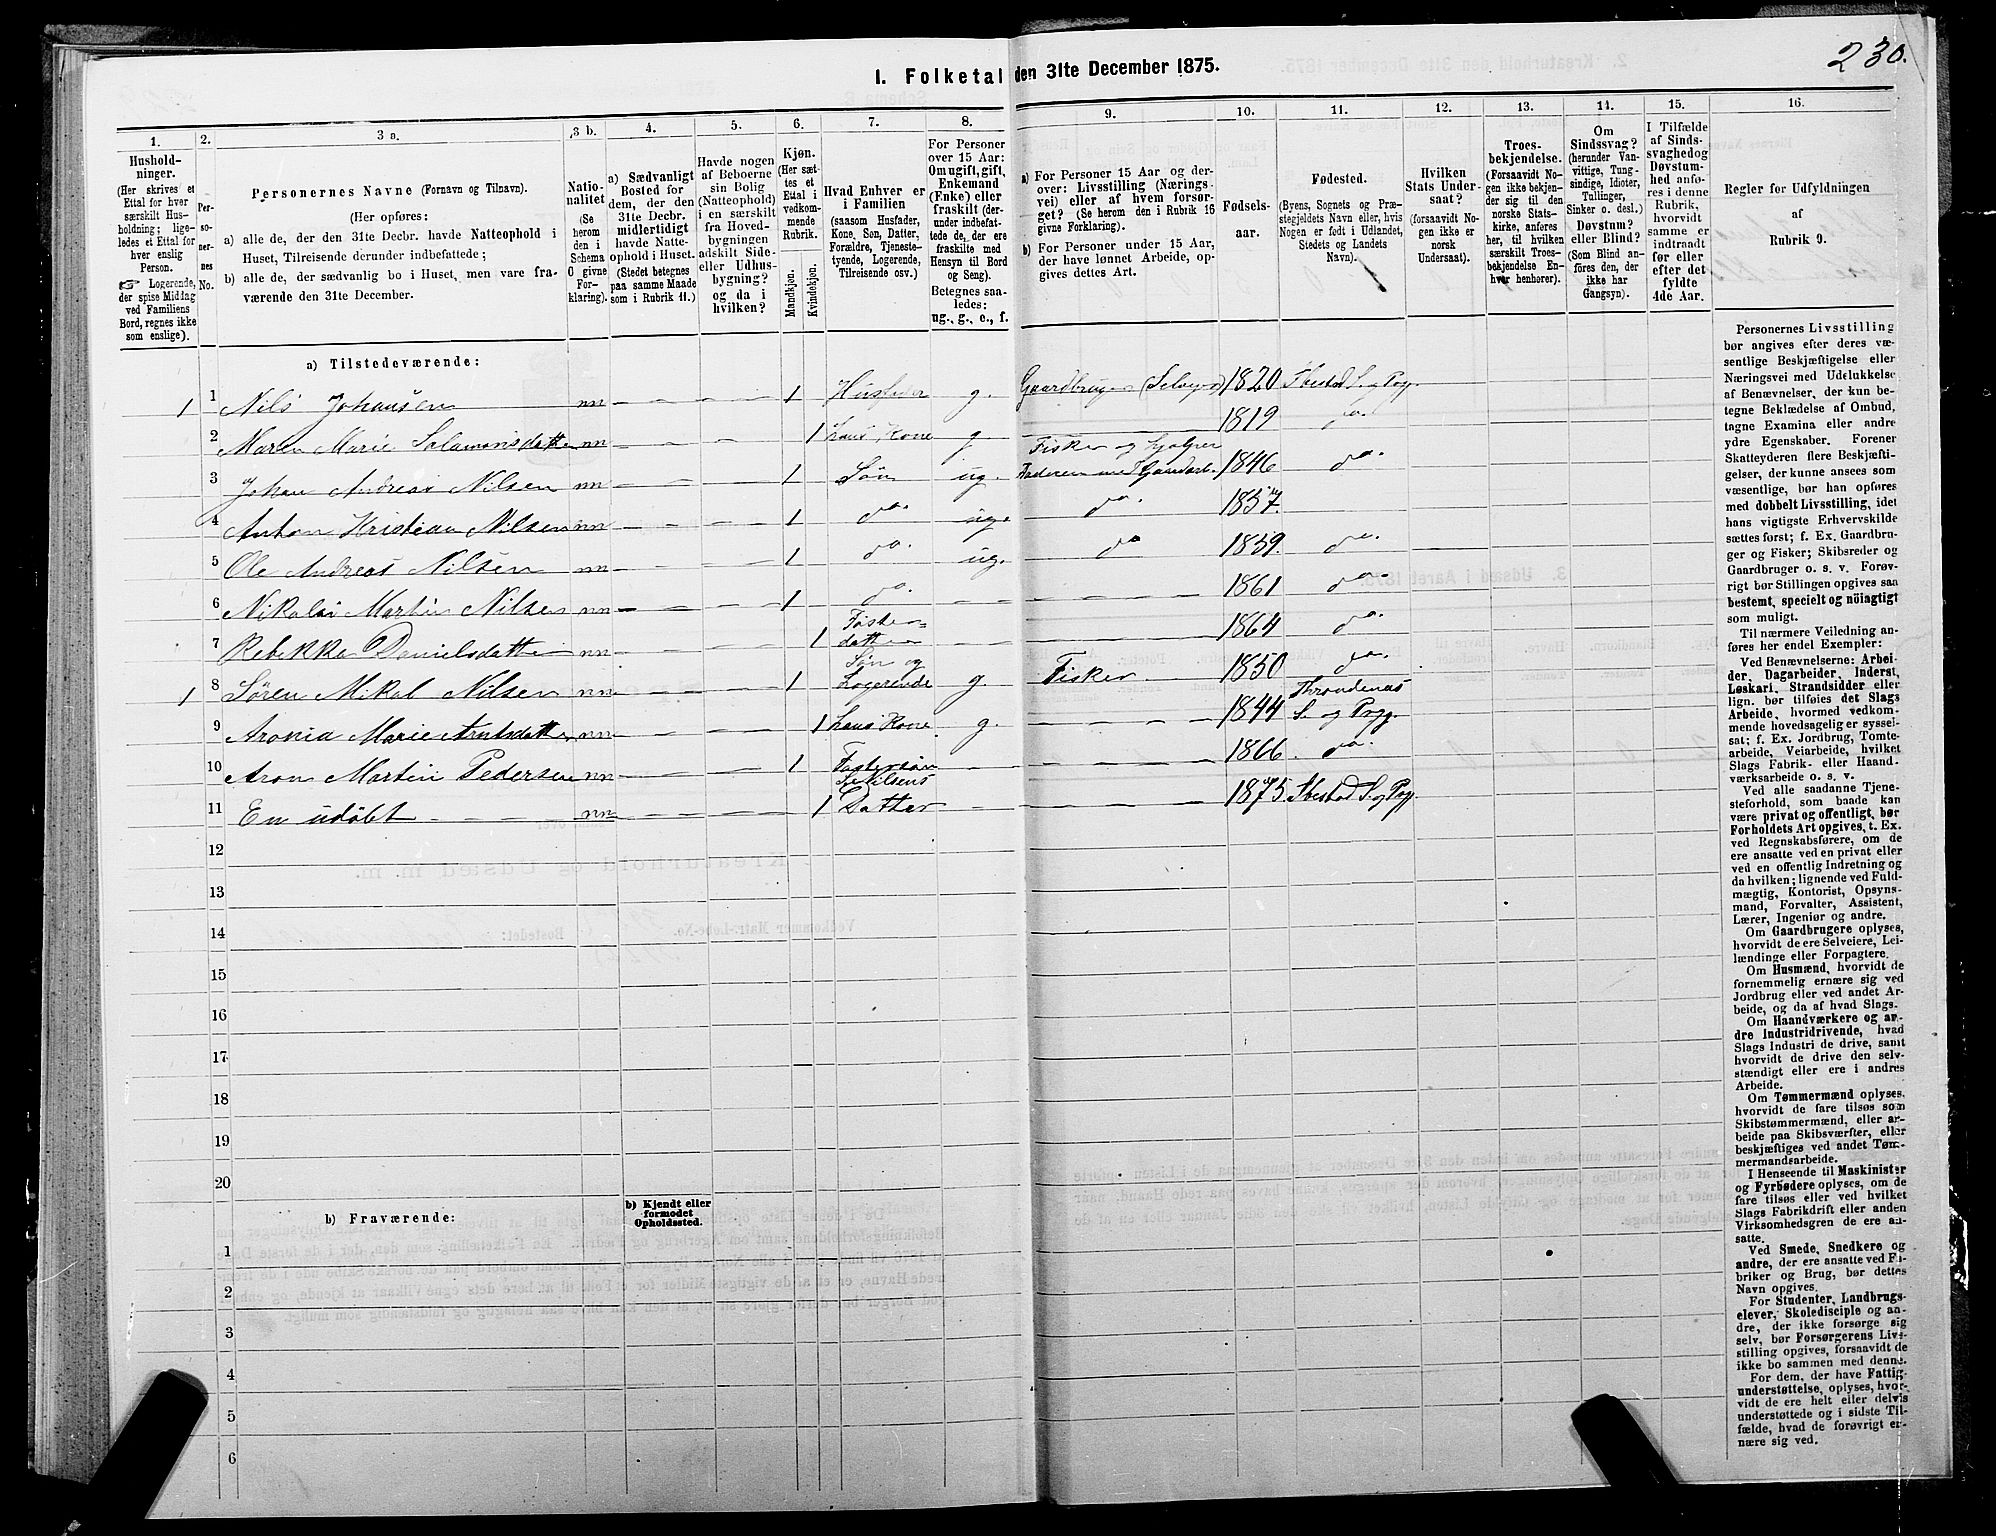 230.
1. Folketal den 31te December 1875.
1. 2. 3 a. 3 b. 4. 5. 6. 7. 8. 9. 10. 11. 12. 13. 14. 15. 16.
Hushold-
ninger.
(Her skrives et
Ettal for hver
særskilt Hus-
holdning; lige-
ledes et Ettal for
hver enslig
Person.
☞ Logerende,
der spise Middag
ved Familiens
Bord, regnes ikke
som enslige).
Per-
so-
ner-
nes
No.
Personernes Navne (Fornavn og Tilnavn).
(Her opføres:
a) alle de, der den 31te Decbr. havde Natteophold i
Huset, Tilreisende derunder indbefattede;
b) alle de, der sædvanlig bo i Huset, men vare fra-
værende den 31te December.
Natio-
nalitet
(Se
herom
den i
Schema
O givne
For-
klaring).
a) Sædvanligt
Bosted for
dem, der den
31te Decbr.
midlertidigt
havde Natte-
ophold i Huset.
(Stedet betegnes
paa samme Maade
som i Rubrik 11.)
Havde nogen
af Beboerne
sin Bolig
(Natteophold)
i en særskilt
fra Hoved-
bygningen
adskilt Side-
eller Udhus-
bygning?
og da i
hvilken?
Kjøn.
(Her sæt-
tes et
Ettal i
vedkom-
mende
Rubrik.
Mandkjøn.
Kvindekjøn.
Hvad Enhver er
i Familien
(saasom Husfader,
Kone, Søn, Datter,
Forældre, Tjeneste-
tyende, Logerende,
Tilreisende osv.)
For Personer
over 15 Aar:
Om ugift, gift,
Enkemand
(Enke) eller
fraskilt (der-
under indbefat-
tede de, der ere
fraskilte med
Hensyn til Bord
og Seng).
Betegnes saa-
ledes:
ug., g., e., f.
a) For Personer 15 Aar og der-
over: Livsstilling (Nærings-
vei) eller af hvem forsør-
get? (Se herom den i Rubrik 16
givne Forklaring).
b) For Personer under 15 Aar,
der have lønnet Arbeide, op-
gives dettes Art.
Fødsels-
aar.
Fødested.
(Byens, Sognets og Præ-
stegjeldets Navn eller, hvis
Nogen er født i Udlandet,
Stedets og Landets
Navn).
Hvilken
Stats Under-
saat?
(forsaavidt No-
gen ikke er
norsk
Undersaat).
Troes-
bekjendelse.
(Forsaavidt No-
gen ikke bekjen-
der sig til den
norske Stats-
kirke, anføres
her, til hvilken
særskilt Troes-
bekjendelse En-
hver henhører).
Om
Sindssvag?
(herunder Van-
vittige, Tung-
sindige, Idioter,
Tullinger,
Sinker o. desl.)
Døvstum?
eller Blind?
(Som Blind an-
føres den, der
ikke har
Gangsyn).
I Tilfælde
af Sinds-
svaghed og
Døvstum-
hed anfø-
res i denne
Rubrik,
hvorvidt
samme er
indtraadt
før eller
efter det
fyldte
4de Aar.
Regler for Udfyldningen
af
Rubrik 9.
a) Tilstedeværende:
1 1 Nils Johansen nn 1 Husfader g. Gaardbruger (Selveier) 1820 Ibestad S. og Pgj.
2 Maren Marie Salamonsdatter nn 1 hans Kone g. 1819 do.
3 Johan Andreas Nilsen nn 1 Søn ug. Fisker og hjelper
Faderen med Gaardarb. 1846 do.
4 Anton Kristian Nilsen nn 1 do. ug. do. 1857.
5 Ole Andreas Nilsen nn 1 do. ug. do 1859. do.
6 Nikolai Martin Nilsen nn 1 do. 1861 do.
7 Rebekka Danielsdatter nn 1 Foster-
datter 1864 do.
1 8 Søren Mikal Nilsen nn 1 Søn og
Logerende g. Fisker 1850 do.
9 Aronia Marie Arntsdatter nn 1 hans Kone g. 1844 Throndenæs
S. og Pgj.
10 Aron Martin Pedersen nn 1 Fostersøn 1866 do.
11 En udøbt nn 1 S. Nilsens
Datter 1875 Ibestad S. og Pgj.
12
13
14
15
16
17
18
19
20
b) Fraværende:
b) Kjendt eller
formodet
Opholdssted.
1
2
3
4
5
6
Personernes Livsstilling
bør angives efter deres væ-
sentlige Beskjæftigelse eller
Næringsvei med Udelukkelse
af Benævnelser, der kun be-
tegne Beklædelse af Ombud,
tagne Examina eller andre
ydre Egenskaber. Forener
Skatteyderen flere Beskjæfti-
gelser, der kunne ansees som
væsentlige, bør han opføres
med dobbelt Livsstilling, idet
hans vigtigste Erhvervskilde
sættes først; f. Ex. Gaardbru-
ger og Fisker; Skibsreder og
Gaardbruger o. s. v. Forøv-
rigt bør Stillingen opgives saa
bestemt, specielt og nöiagtigt
som muligt.
Til nærmere Veiledning an-
føres her endel Exempler:
Ved Benævnelserne: Arbei-
der, Dagarbeider, Inderst,
Løskarl, Strandsidder eller
lign. bør tilføies det Slags
Arbeide, hvormed vedkom-
mende hovedsagelig er syssel-
sat; f. Ex. Jordbrug, Tomte-
arbeide, Veiarbeide, hvilket
Slags Fabrik- eller Haand-
værksarbeide o. s. v.
Ved alle saadanne Tjene-
steforhold, som baade kan
være privat og offentligt, bør
Forholdets Art opgives, t. Ex.
ved Regnskabsførere, om de
ere ansatte ved en privat eller
ved en offentlig Indretning og
da hvilken; lignende ved Fuld-
mægtig, Kontorist, Opsyns-
mand, Forvalter, Assistent,
Lærer, Ingeniør og andre.
Om Gaardbrugere oplyses,
hvorvidt de ere Selveiere, Lei-
lændinge eller Forpagtere.
Om Husmænd, hvorvidt de
fornemmelig ernære sig ved
Jordbrug eller ved andet Ar-
beide, og da af hvad Slags.
Om Haandværkere og an-
dre Industridrivende, hvad
Slags Industri de drive, samt
hvorvidt de drive den selv-
stændigt eller ere i andres
Arbeide.
Om Tømmermænd oplyses,
hvorvidt de fare tilsøs som
Skibstømmermænd, eller ar-
beide paa Skibsværfter, eller
beskjæftiges ved andet Tøm-
mermandsarbeide.
I Henseende til Maskinister
og Fyrbødere oplyses, om de
fare tilsøs eller ved hvilket
Slags Fabrikdrift eller anden
Virksomhedsgren de ere an-
satte.
Ved Smede, Snedkere og
andre, der ere ansatte ved Fa-
briker og Brug, bør dettes
Navn opgives.
For Studenter, Landbrugs-
elever, Skoledisciple og an-
dre, der ikke forsørge sig
selv, bør Forsørgerens Livs-
stilling opgives, forsaavidt de
ikke bo sammen med denne.
For dem, der have Fattig-
understøttelse, oplyses, hvor-
vidt de ere helt eller delvis
understøttede og i sidste Til-
fælde, hvad de forøvrigt er-
nære sig ved.